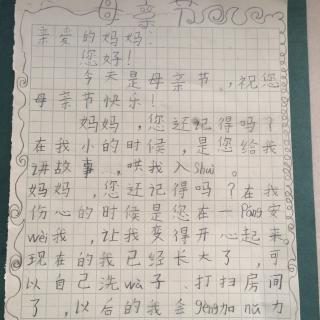 母亲节
亲爱的妈妈:
您好!
今天是母亲节,祝您
母亲节快乐!
妈妈,您还记得吗?
在我小的时候,是您给我
讲故事,哄我入shuì。
妈妈,您还记得吗?在我
伤心的时候是您在一páng安
wèi我,让我变得开心起来。
现在的我已经长大了,可
以自己洗wà子、打扫房间
了,以后的我会gèng加nǔ力